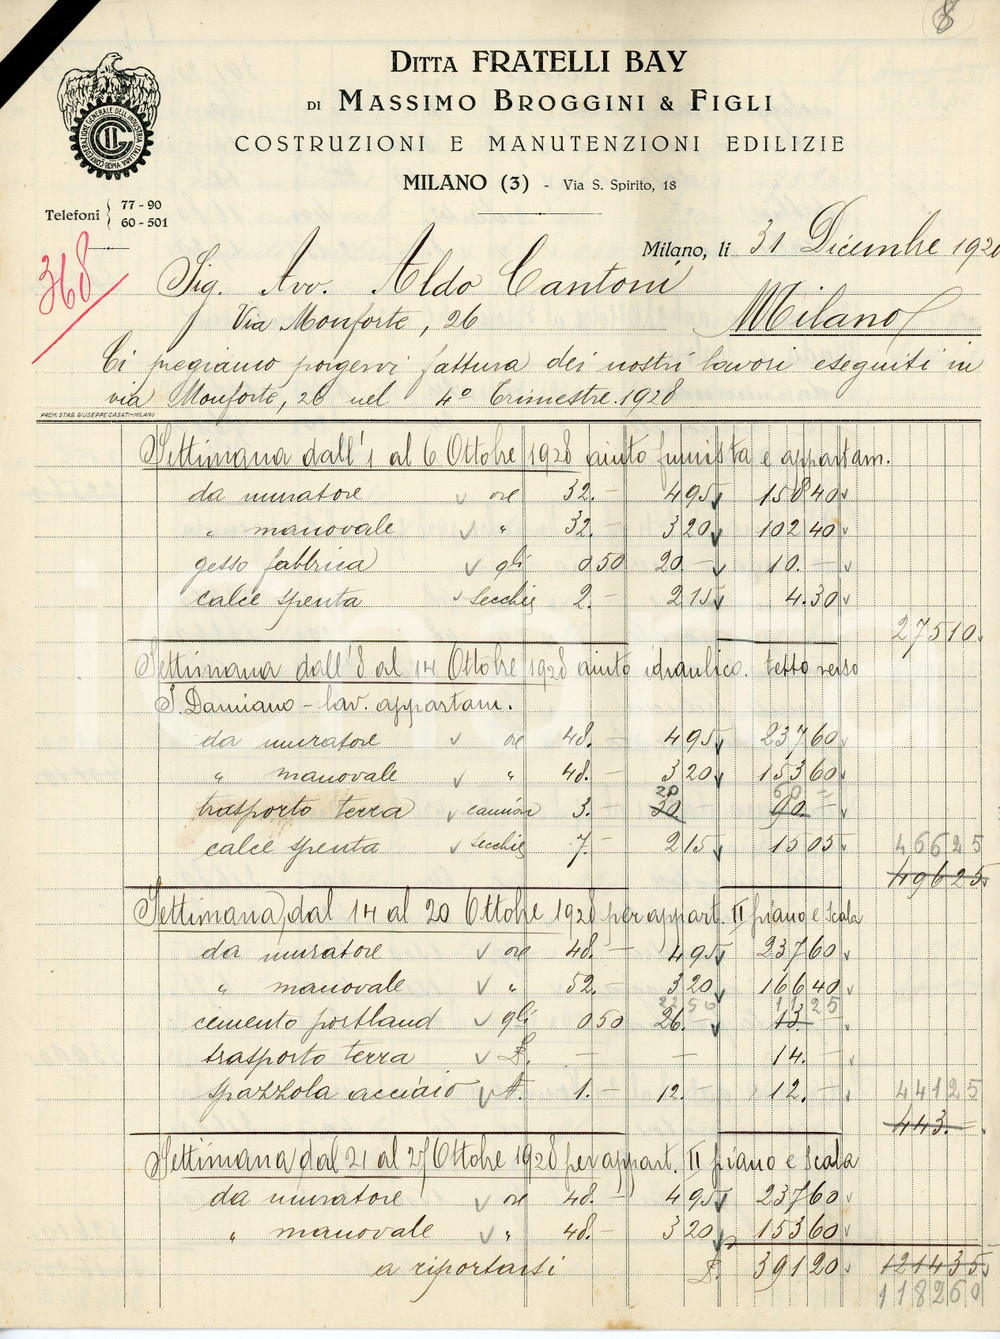 8
DITTA FRATELLI BAY
DI MASSIMO BROGGINI & FIGLI
COSTRUZIONI E MANUTENZIONI EDILIZIE
MILANO (3) - Via S. Spirito, 18
CONFEDERAZIONE GENERALE DELL'INDUSTRIA ITALIANA
Telefoni { 77-90
60-501
368
Milano, li 31 Dicembre 1928
Sig. Avv. Aldo Cantoni
Via Monforte, 26 Milano
Ci pregiamo porgervi fattura dei nostri lavori eseguiti in
via Monforte, 26 nel 4º Trimestre 1928
PREM. STAB. GIUSEPPE CASATI-MILANO
Settimana dall'1 al 6 Ottobre 1928 aiuto fumista e appartam.
da muratore ore 32.- 495 15840
" manovale " 32.- 320 10240
gesso fabbrica qli 0.50 20.- 10.-
calce spenta secchie 2.- 215 4.30
27510.
Settimana dall'8 al 14 Ottobre 1928 aiuto idraulico. tetto verso
S. Damiano - lav. appartam.
da muratore ore 48.- 495 23760
" manovale " 48.- 320 15360
20 60 =
trasporto terra camion 3.- 30.- 90.-
calce spenta secchie 7.- 215 1505
46625
49625
Settimana dal 14 al 20 Ottobre 1928 per appart. II piano e Scala
da muratore ore 48.- 495 23760
" manovale " 52.- 320 16640
2250 1125
cemento portland qli 0.50 26.- 13.-
trasporto terra £. - - 14.-
spazzola acciaio N. 1.- 12.- 12.-
44125
443.-
Settimana dal 21 al 27 Ottobre 1928 per appart. II piano e Scala
da muratore ore 48.- 495 23760
" manovale " 48.- 320 15360
a riportarsi £. 39120 121435
118260